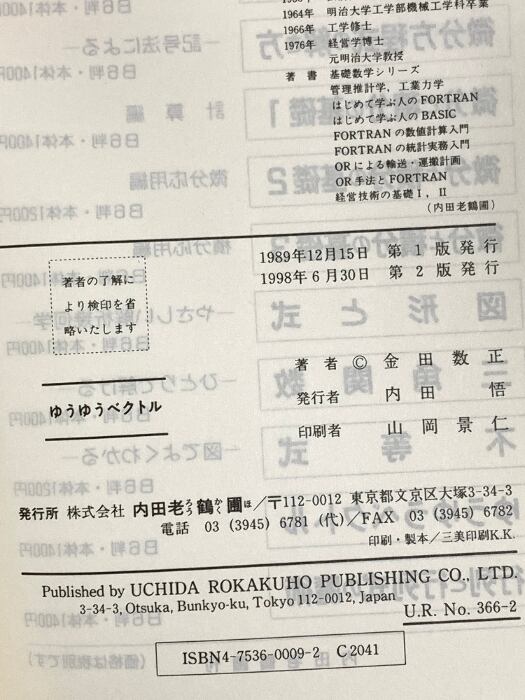 1964年 明治大学工学部機械工学科卒業
1966年 工学修士
1976年 経営学博士
元明治大学教授
著書 基礎数学シリーズ
管理推計学，工業力学
はじめて学ぶ人のFORTRAN
はじめて学ぶ人のBASIC
FORTRANの数値計算入門
FORTRANの統計実務入門
ORによる輸送・運搬計画
OR手法とFORTRAN
経営技術の基礎Ⅰ，Ⅱ
(内田老鶴圃)
1989年12月15日 第1版発行
1998年6月30日 第2版発行
著者の了解に
より検印を省
略いたします
ゆうゆうベクトル
著者 © 金田数正
発行者 内田悟
印刷者 山岡景仁
発行所 株式会社 内田老ろう鶴かく圃ほ/〒112-0012 東京都文京区大塚3-34-3
電話 03 (3945) 6781 (代)/FAX 03 (3945) 6782
印刷・製本/三美印刷K.K.
Published by UCHIDA ROKAKUHO PUBLISHING CO., LTD.
3-34-3, Otsuka, Bunkyo-ku, Tokyo 112-0012, Japan
U.R. No. 366-2
ISBN4-7536-0009-2 C2041